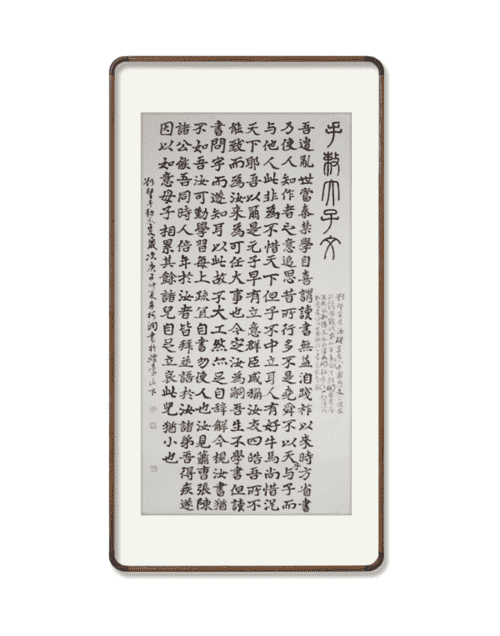 手敕太子文
吾遭亂世當秦禁學自喜謂讀書無益洎踐祚以來時方省書
乃使人知作者之意追思昔所行多不是堯舜不以天与子而
与他人此非為不惜天下但子不中立耳人有好牛馬尚惜況
天下耶吾以爾是元子早有立意群臣咸稱汝友四皓吾所不
能致而為汝來為可任大事也今定汝為嗣吾生不學書但讀
書問字而遂知耳以此故不大工然亦足自辭解今視汝書猶
不如吾汝可勤學習每上疏宜自書勿使人也汝見蕭曹張陳
諸公侯吾同時人倍年於汝者皆拜並語於汝諸弟吾得疾遂
因以如意母子相累其餘諸兒自足立哀此兒猶小也
歲次庚子仲夏月